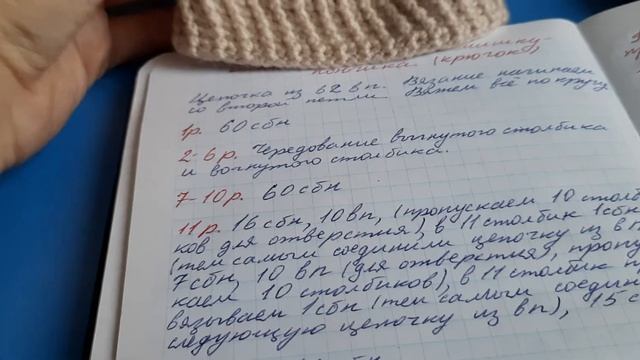 мишку-
(крючок)
Цепочка из 62 вп. Вязание начинаем
со второй петли. Вяжем всё по кругу
1р. 60 сбн
2-6р. Чередование выгнутого столбика
и вогнутого столбика.
7-10р. 60 сбн
11р. 16 сбн, 10 вп, (пропускаем 10 столби
ков для отверстия), в 11 столбик 1 сбн
(тем самым соединили цепочку из вп
7 сбн, 10 вп (для отверстия), пропу
каем 10 столбиков), в 11 столбик п
вязываем 1 сбн (тем самым соедин
следующую цепочку из вп), 15 с
сбн